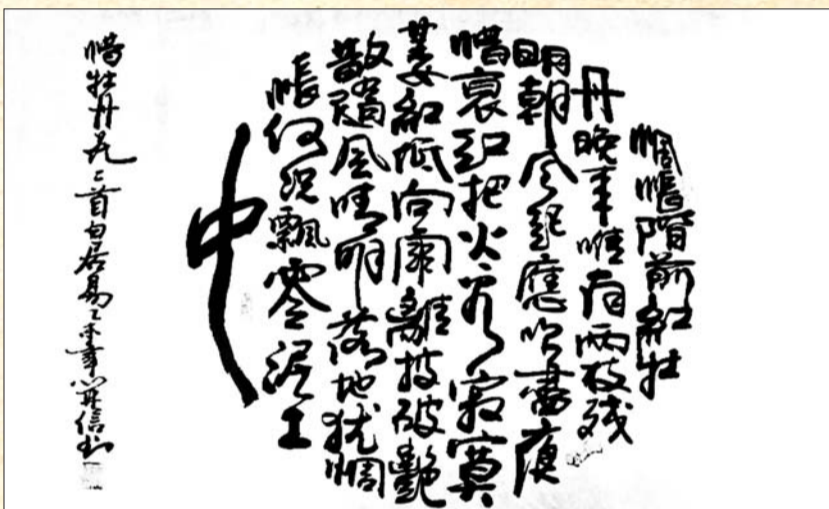 惆悵階前紅牡
丹晚来唯有兩枝残
明朝风起應吹盡夜
惜衰红把火看寂寞
萎紅低向雨離披破艷
散隨風晴明落地犹惆
悵何况飄零泥土
中
惜牡丹花二首白居易乙未年信书